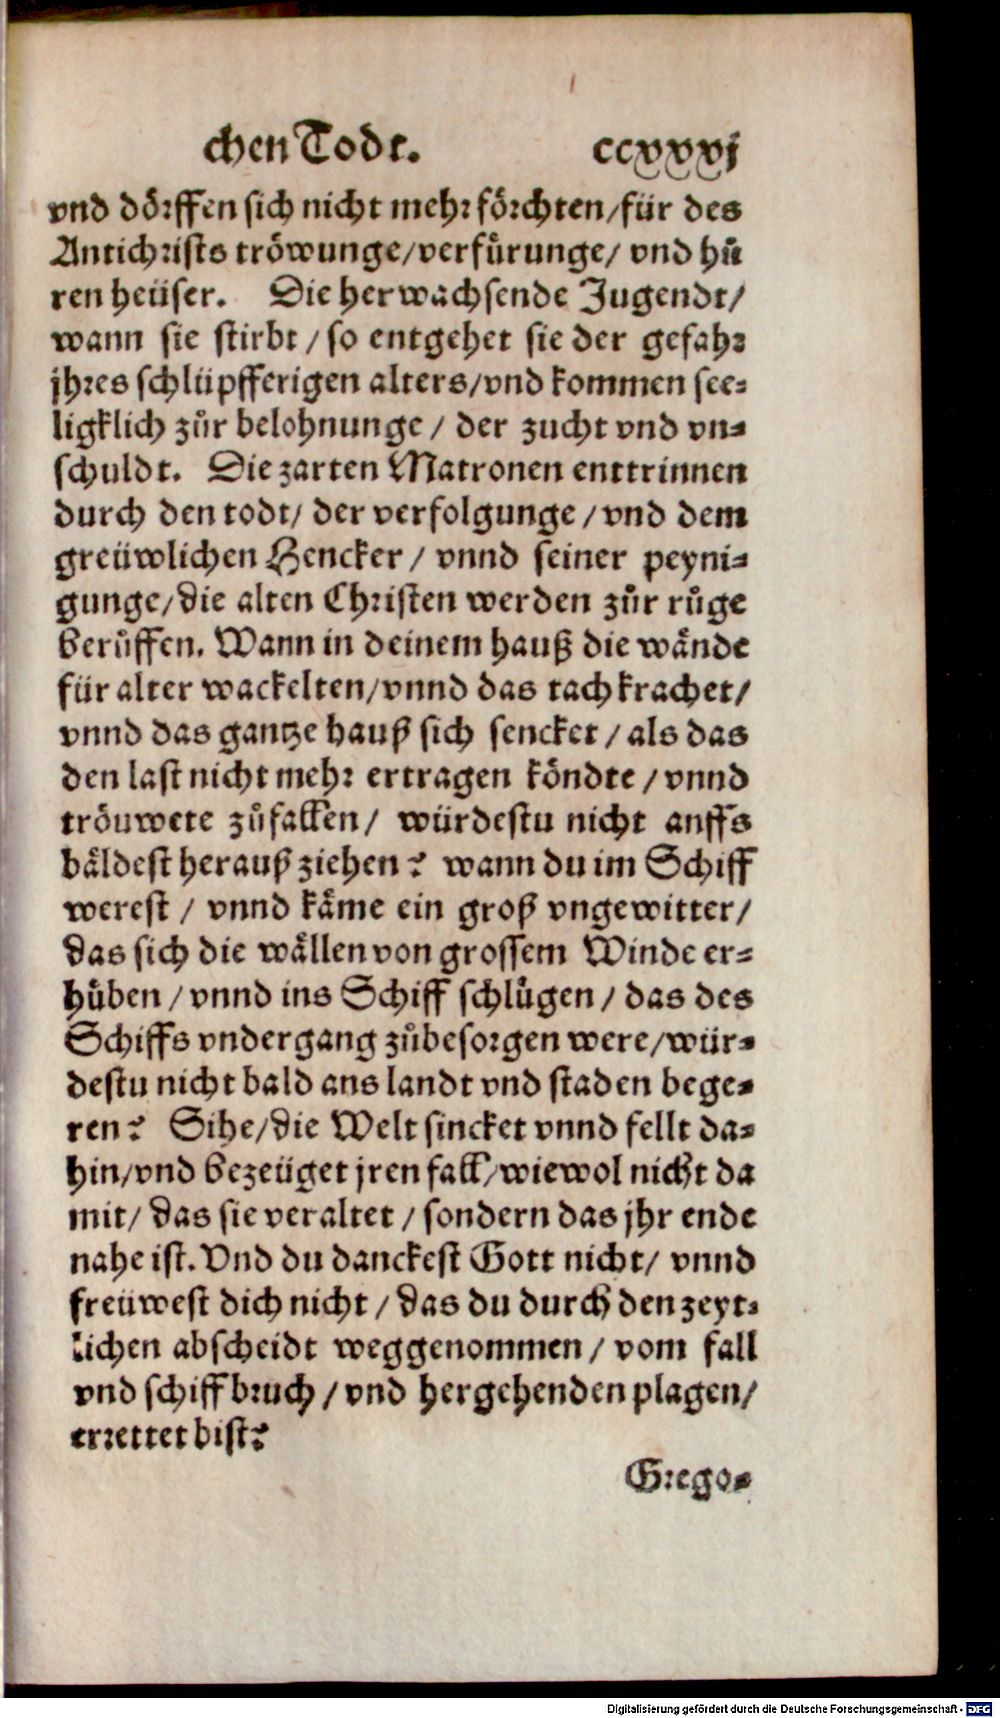 chen Todt. ccxxxvj
vnd dörffen sich nicht mehr förchten/für des
Antichrists tröwunge/verfürunge/ vnd hů
ren heüser. Die herwachsende Jugendt/
wann sie stirbt / so entgehet sie der gefahr
jhres schlüpfferigen alters/vnd kommen see-
ligklich zůr belohnunge / der zucht vnd vn-
schuldt. Die zarten Matronen enttrinnen
durch den todt/ der verfolgunge / vnd dem
greüwlichen Hencker / vnnd seiner peyni-
gunge/die alten Christen werden zůr růge
berůffen. Wann in deinem hauß die wände
für alter wackelten/vnnd das tach krachet/
vnnd das gantze hauß sich sencket / als das
den last nicht mehr ertragen köndte / vnnd
tröuwete zůfallen/ würdestu nicht auffs
bäldest herauß ziehen? wann du im Schiff
werest / vnnd käme ein groß vngewitter/
das sich die wällen von grossem Winde er-
hüben / vnnd ins Schiff schlügen / das des
Schiffs vndergang zůbesorgen were/wür-
destu nicht bald ans landt vnd staden bege-
ren? Sihe/die Welt sincket vnnd fellt da-
hin/vnd bezeüget jren fall/wiewol nicht da
mit/ das sie veraltet / sondern das jhr ende
nahe ist. Vnd du danckest Gott nicht/ vnnd
freüwest dich nicht / das du durch den zeyt-
lichen abscheidt weggenommen / vom fall
vnd schiffbruch / vnd hergehenden plagen/
errettet bist?
Grego-
Digitalisierung gefördert durch die Deutsche Forschungsgemeinschaft - DFG